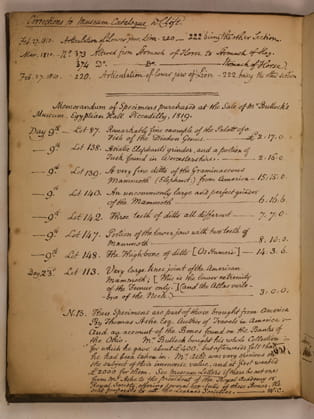 Corrections to Museum Catalogue. W. Clift.
Feb. 27. 1810. Articulation of Lower Jaw, Lion. 220 — 222 being the other Section.
Mar. 1810. No. 373 Altered from Stomach of Horse to Stomach of Hog.
374 Do. — Do. — Stomach of Horse.
Feb. 27. 1810. — 220. Articulation of lower jaw of Lion — 222 being the other section
Memorandum of Specimens purchased at the Sale of Mr. Bullock's
Museum. Egyptian Hall Piccadilly, 1819.
Day 9th Lot 87. Remarkably fine example of the Palate of a
Fish of the Diodon Genus. £2. 17. 0.
— 9th Lot 138. Asiatic Elephants grinder, and a portion of
Tusk found in Worcestershire. 2. 15. 0
— 9th Lot 139. A very fine ditto of the Graminivorous
Mammoth (Elephant) from America — 15. 15. 0.
— 9th Lot 140. An uncommonly large and perfect grinder
of the Mammoth 6. 16. 6
— 9th Lot 142. Three teeth of ditto all different — 7. 7. 0
— 9th Lot 147. Portion of the lower jaw with two teeth of
Mammoth 8. 10. 0.
— 9th Lot 148. The thigh bone of ditto [Os Humeri] — 14. 3. 6.
Day 23d Lot 113. Very large knee joint of the American
Mammoth; [This is the lower extremity
of the Femur only.] (and the Atlas verte-
bra of the Neck.) 3. 0. 0.
N.B. These Specimens are part of those brought from America
by Thomas Ashe Esq. Author of Travels in America
and an account of the Bones found on the Banks of
the Ohio. Mr. Bullock bought his whole Collection
for which he gave about £200. but afterwards felt that
he had been taken in. Mr. Ashe was very
the subject of their immense value, and at first wanted
£2000 for them. See
from Mr. Ashe to the president of the
Royal Society offering